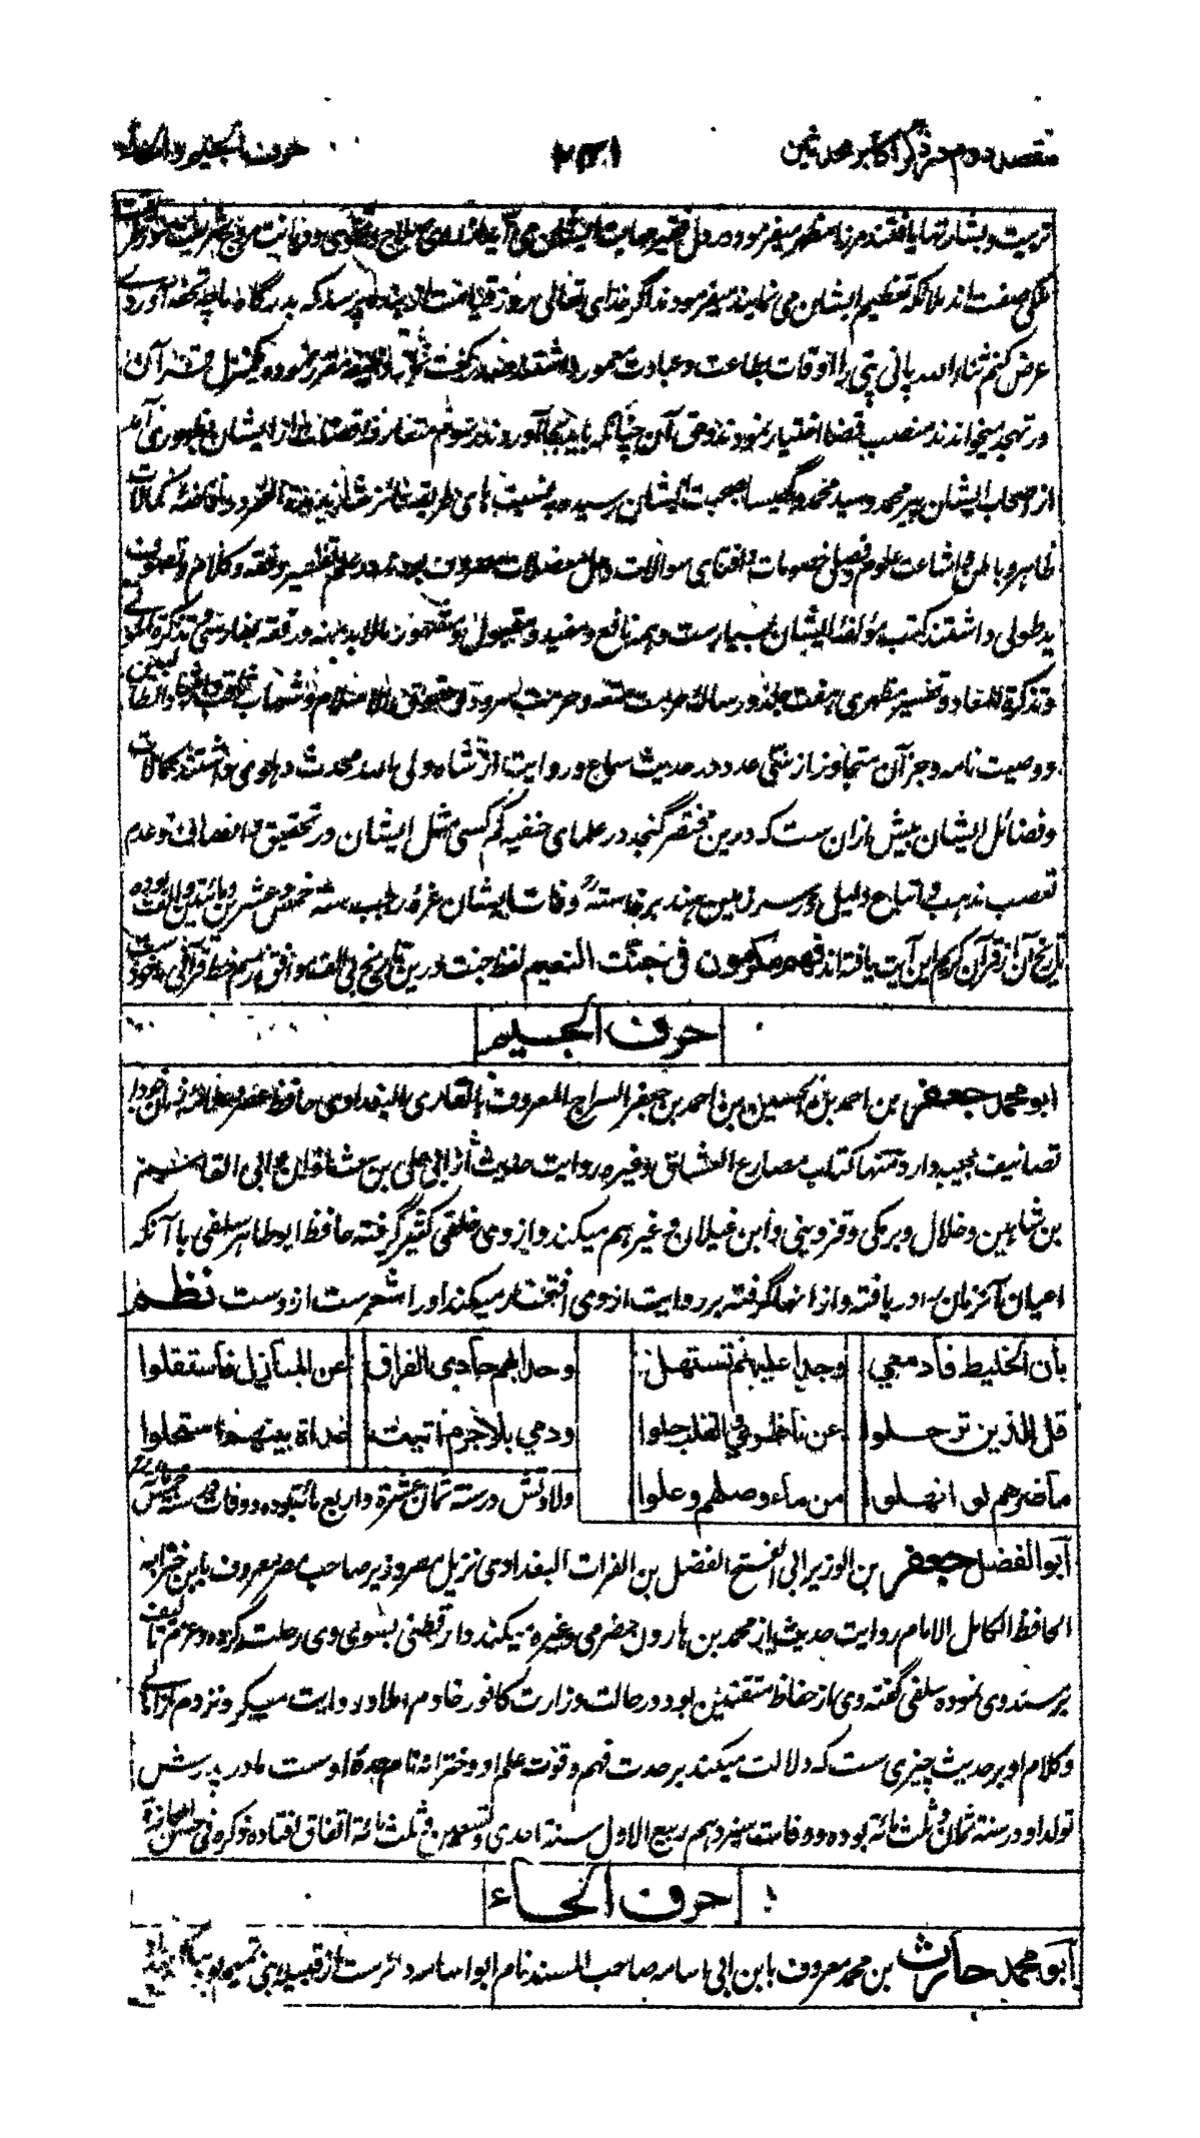 مقصد دوم در ذکر اکابر محدثین
حرف الجیم والحاء
تربیت و بشارتها یافتند مرزا مظهر میفرمود در دل فقیر مهابت ایشان می آید از روی صلاح و تقوی و دیانت مروج شریعت
ملکی صفت اند ملائکه تعظیم ایشان می نمایند میفرمودند اگر خدای تعالی بروز قیامت از بنده پرسد که بدرگاه ما چه تحفه آوردی
عرض کنم ثناء الله پانی پتی را اوقات بطاعت و عبادت معمور داشتند صد رکعت وظیفه مقرر نموده و یک منزل قرآن
در تهجد میخواندند منصب قضا اختیار نمودند و حق آن چنانکه باید بجا آوردند رسوم متعارفه قضات از ایشان بظهور نمی آمد
از اصحاب ایشان پیر محمد و سید محمد بصحبت ایشان رسیده بنسبت های طریقه فائز شدند کمالات
ظاهر و باطن و اشاعت علوم و فصل خصومات و افتای سوالات و حل معضلات مصروف بوده در علم تفسیر و فقه و کلام و تصوف
ید طولی داشتند کتب مؤلفه ایشان بسیارست و همه نافع و مفید و مقبول و مشهور مالابد منه در فقه بفارسی تذکرة الموتی
و تذکرة المعاد و تفسیر مظهری هفت جلد و رساله حرمت متعه و حرمت سرود و حقوق الاسلام و شهاب ثاقب
و وصیت نامه و جز آن متجاوز از سی عدد در حدیث سماع و روایت از شاه ولی الله محدث دهلوی داشتند کمالات
و فضائل ایشان بیش ازان ست که درین مختصر گنجد در علمای حنفیه کم کسی مثل ایشان در تحقیق و انصاف و عدم
تعصب مذهب و اتباع دلیل در سرزمین هند برخاسته وفات ایشان غرهٔ رجب سنه خمس و عشرین و مائتین و الف بوده
تاریخ آن از قرآن کریم این آیت یافته اند فهم مکرمون فی جنٰت النعیم لفظ جنت درین تاریخ بی الف موافق رسم خط قرآنی ماخوذ ست
حرف الجیم
ابو محمد جعفر بن احمد بن الحسین بن احمد بن جعفر السراج المعروف بالقاری البغدادی حافظ عصر و علامه زمان خود بود
تصانیف عجیبه دارد منها کتاب مصارع العشاق وغیره روایت حدیث از ابی علی بن شاذان و ابی القاسم
بن شاهین و خلال و برمکی و قزوینی و ابن غیلان و غیرهم میکند و از وی خلقی کثیر گرفته حافظ ابو طاهر سلفی با آنکه
اعیان آنزمان را دریافته و از انها گرفته بروایت از وی افتخار میکند او را شعرست ازوست نظم
بأن الخلیط فأدمعی وجدا علیهم تستهل
وحدا بهم حادی الفراق عن المنازل فاستقلوا
قل للذین ترحلوا عن ناظری و القلب حلوا
ودمی بلا جرم اتیت غداة بینهم استحلوا
ما ضرهم لو انهلوا من ماء وصلهم وعلوا
ولادتش در سنه ثمان عشرة و اربع مائة بوده و وفات در سنه خمس مائة
ابو الفضل جعفر بن الوزیر ابی الفتح الفضل بن الفرات البغدادی نزیل مصر وزیر صاحب مصر معروف بابن خنزابه
الحافظ الکامل الامام روایت حدیث از محمد بن هارون حضرمی و غیره میکند دارقطنی بسوی وی رحلت کرده و عزم تالیف
بر مسند وی نموده سلفی گفته وی از حفاظ متقنین بود در حالت وزارت کافور خادم املا و روایت میکرد و نزدم از امالی
و کلام او بر حدیث چیزی ست که دلالت میکند بر حدت فهم و قوت علم او و خنزابه نام جدهٔ اوست مادر پدرش
تولد او در سنه ثمان و ثلث مائة بوده و وفات سیزدهم ربیع الاول سنة احدی و تسعین و ثلث مائة اتفاق افتاده ذکره فی حسن المحاضرة
حرف الحاء
ابو محمد حارث بن محمد معروف بابن ابی اسامه صاحب المسند نام ابو اسامه داهرست از قبیله بنی تمیم